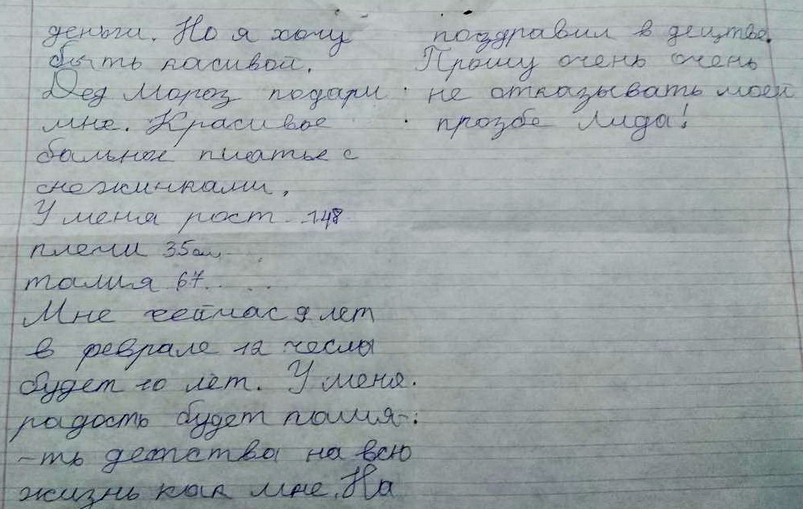 деньги. Но я хочу
быть касивой.
Дед Мороз подари
мне. Красивое
бальное платье с
снежинками.
У меня рост 148
плечи 35см
талия 67
Мне сейчас 9 лет
в феврале 12 чеслы
будет 10 лет. У меня.
радость будет памия-
-ть детства на всю
жизнь как мне. На
поздравил в децтве.
Прошу очень очень
не отказывать моей
прозбе Лида!